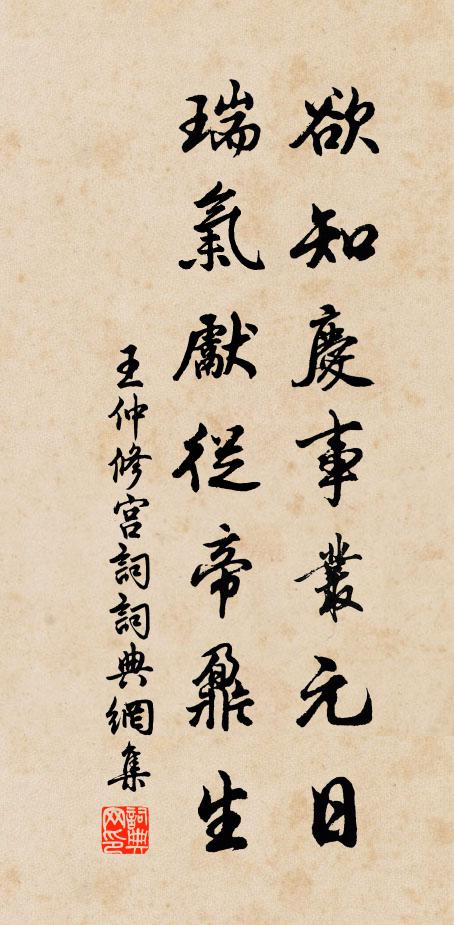 欲知慶事叢元日
瑞氣獻從帝鼐生
王仲修宮詞詞典網集
詞典網印